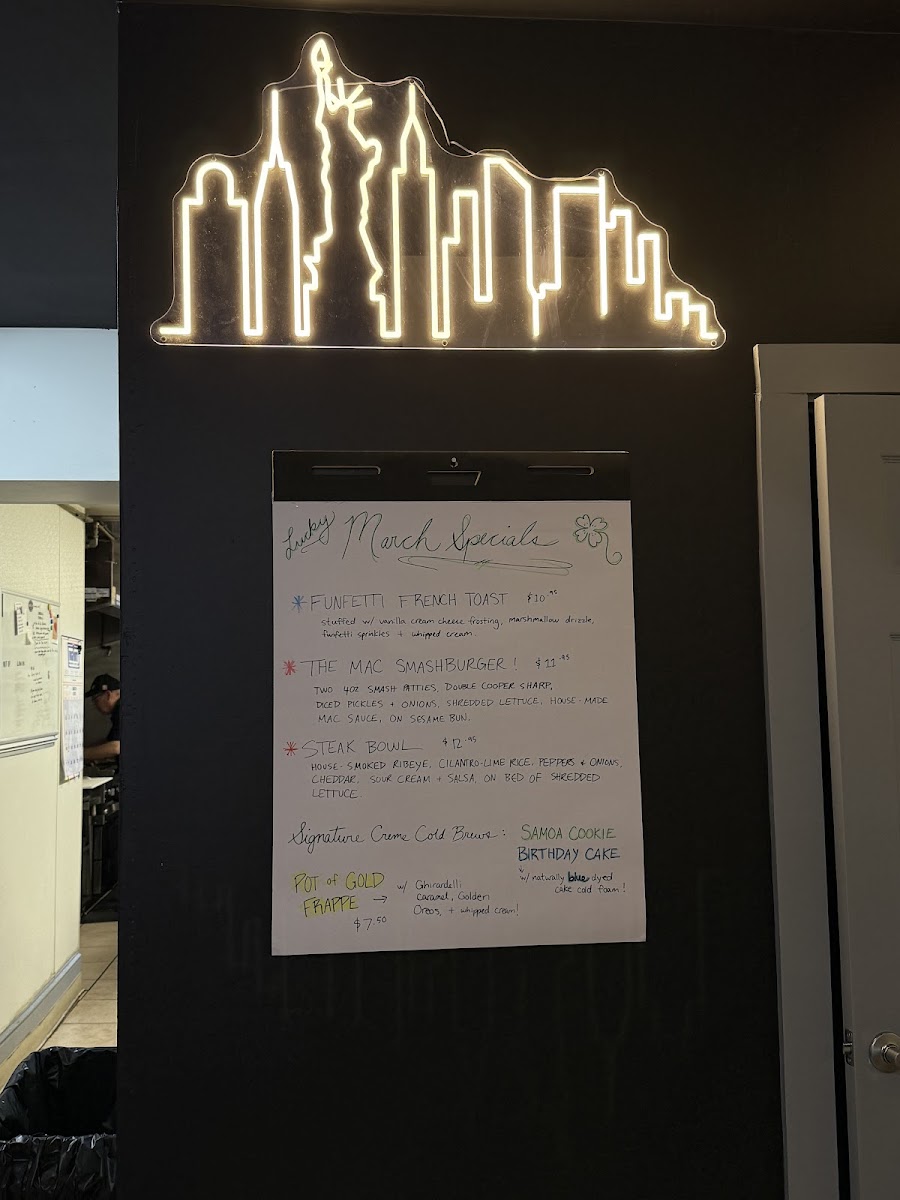 Lucky March Specials
FUNFETTI FRENCH TOAST $10.95
stuffed w/ vanilla cream cheese frosting, marshmallow drizzle,
funfetti sprinkles + whipped cream.
THE MAC SMASHBURGER! $11.95
TWO 4OZ SMASH PATTIES, DOUBLE COOPER SHARP,
DICED PICKLES + ONIONS, SHREDDED LETTUCE, HOUSE-MADE
MAC SAUCE, ON SESAME BUN.
STEAK BOWL $12.95
HOUSE-SMOKED RIBEYE, CILANTRO-LIME RICE, PEPPERS + ONIONS,
CHEDDAR, SOUR CREAM + SALSA, ON BED OF SHREDDED
LETTUCE.
Signature Creme Cold Brews: SAMOA COOKIE
BIRTHDAY CAKE
w/ naturally blue dyed
cake cold foam!
POT of GOLD
FRAPPE →
$7.50
w/ Ghirardelli
Caramel, Golden
Oreos, + whipped cream!